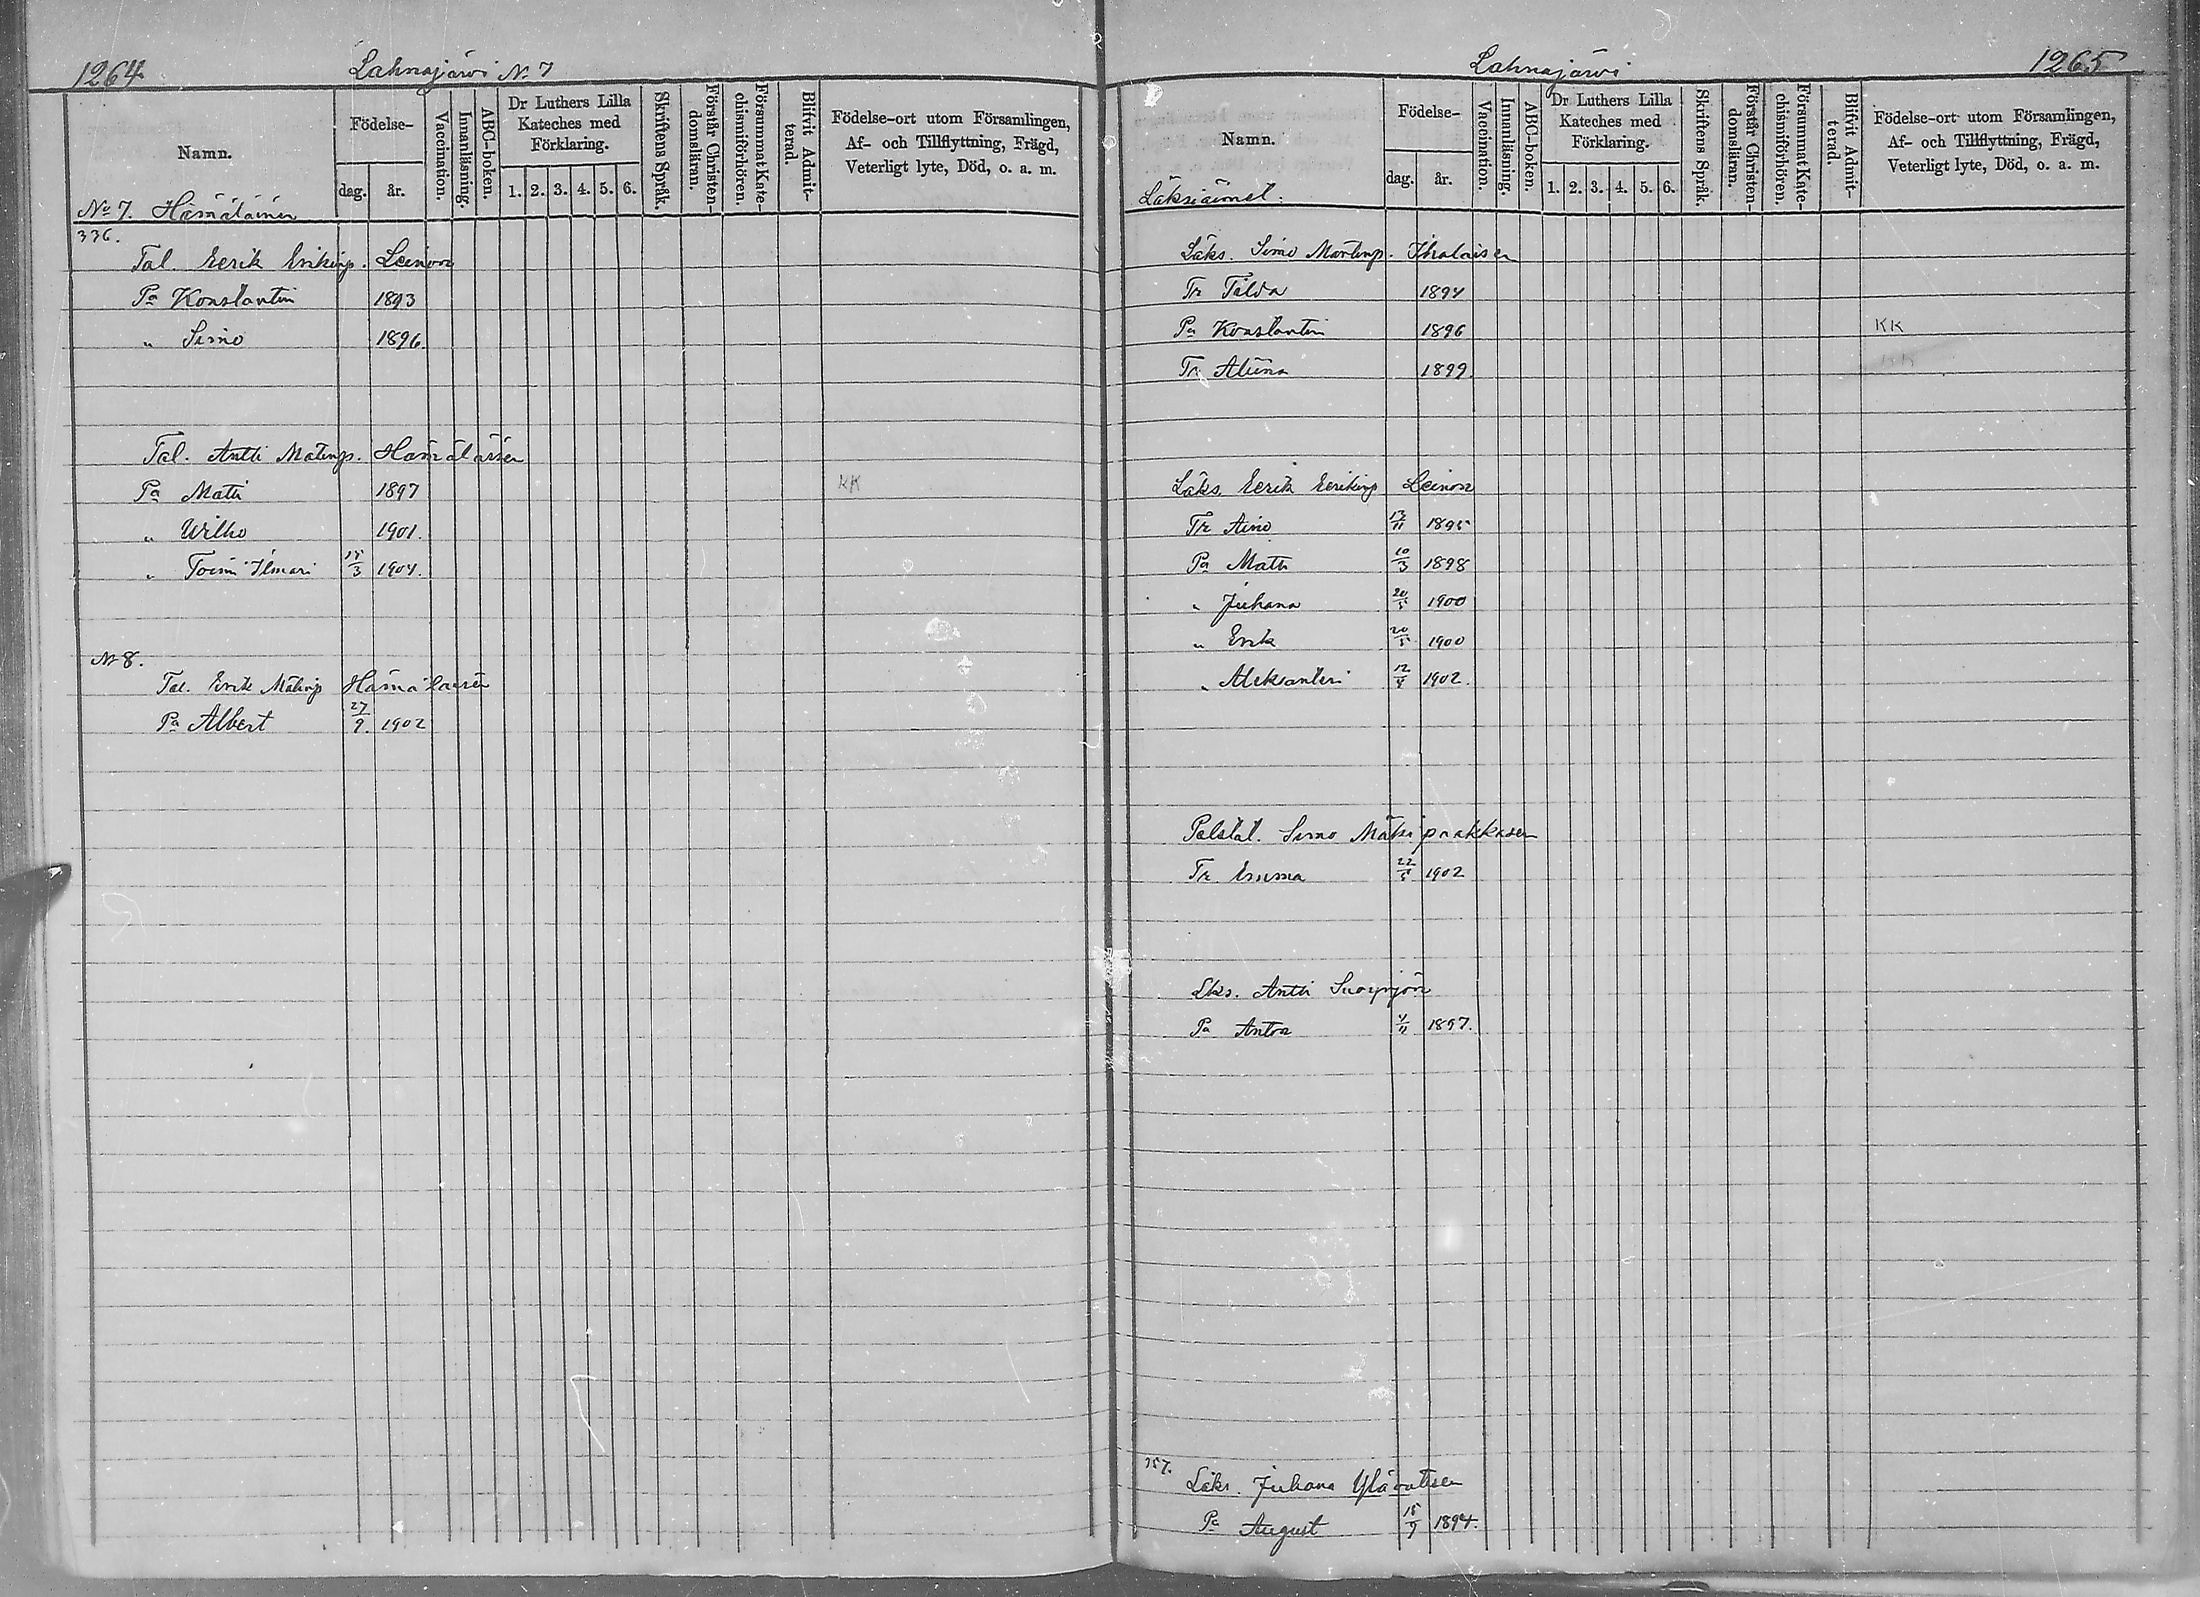 1264
Lahnajärvi No 7
Namn.
Födelse-
dag.
år.
Vaccination.
Innanläsning.
ABC-boken.
Dr Luthers Lilla
Kateches med
Förklaring.
1. 2. 3. 4. 5. 6.
Skriftens Språk.
Förstår Christen-
domsläran.
Försummat Kate-
chismiförhören.
Blifvit Admit-
terad.
Födelse-ort utom Församlingen,
Af- och Tillflyttning, Frägd,
Veterligt lyte, Död, o. a. m.
No 7. Hämäläinen
336.
Tal. Eerik Erikinp. Leinon
Pa Konstantin 1893
" Simo 1896.
Tal. Antti Matinp. Hämäläisen
Pa Matti 1897 KK
" Wilho 1901.
" Toimi Ilmari 15/3 1904.
N 8.
Tal. Erik Matinp Hämäläisen
Pa Albert 27/9. 1902
Lahnajärvi
1265
Namn.
Födelse-
dag.
år.
Vaccination.
Innanläsning.
ABC-boken.
Dr Luthers Lilla
Kateches med
Förklaring.
1. 2. 3. 4. 5. 6.
Skriftens Språk.
Förstår Christen-
domsläran.
Försummat Kate-
chismiförhören.
Blifvit Admit-
terad.
Födelse-ort utom Församlingen,
Af- och Tillflyttning, Frägd,
Veterligt lyte, Död, o. a. m.
Läksiäimet.
Läks. Simo Martinp. Ihalaisen
Tr Tilda 1894
Pa Konstantin 1896 KK
Tr Aliina 1899.
Läks. Eerik Eerikinp Leinon
Tr Aino 13/11 1895
Pa Matti 10/3 1898
" Juhana 20/5 1900
" Erik 20/5 1900
" Aleksanteri 12/4 1902.
Palstal. Simo Mäkipaakkasen
Tr. Emma 22/5 1902
Lks. Antti
Pa Anton 4/11 1897.
357.
Läks. Juhana Ylävatisen
Pa August 15/9 1894.